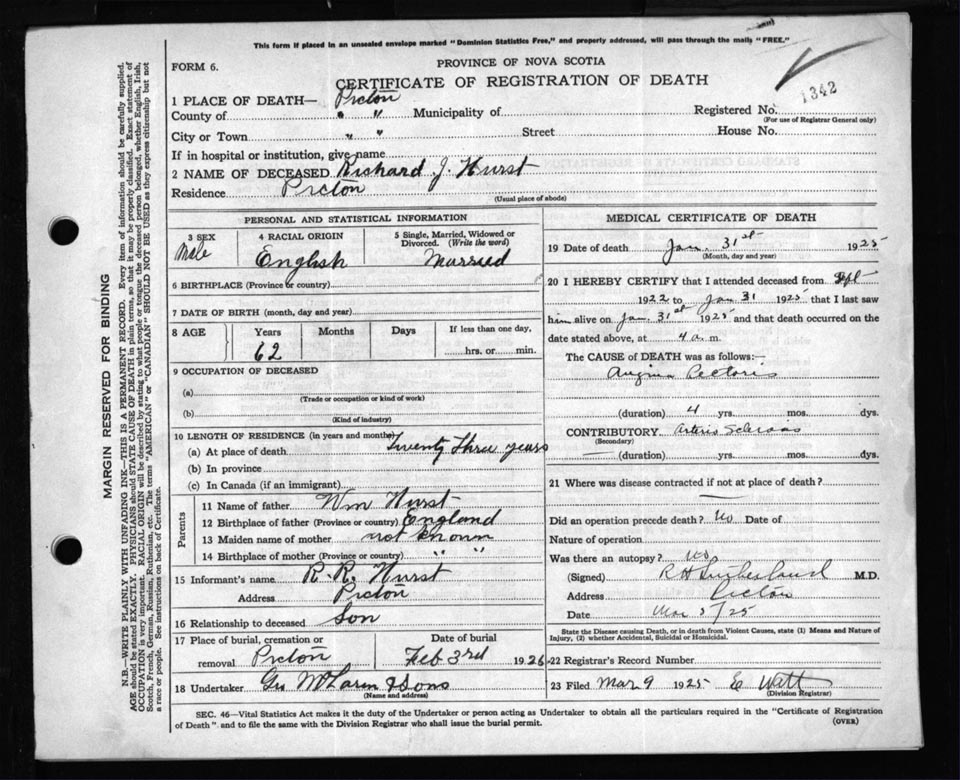 This form if placed in an unsealed envelope marked "Dominion Statistics Free," and properly addressed, will pass through the mails "FREE."
FORM 6.
PROVINCE OF NOVA SCOTIA
CERTIFICATE OF REGISTRATION OF DEATH
1342
1 PLACE OF DEATH— Pictou
County of " " Municipality of Registered No.
(For use of Registrar General only)
City or Town " " Street House No.
If in hospital or institution, give name
2 NAME OF DECEASED Richard J. Hurst
Residence Pictou
(Usual place of abode)
PERSONAL AND STATISTICAL INFORMATION
3 SEX 4 RACIAL ORIGIN 5 Single, Married, Widowed or Divorced. (Write the word)
Male English Married
6 BIRTHPLACE (Province or country)
7 DATE OF BIRTH (month, day and year)
8 AGE Years Months Days If less than one day,
62 hrs. or min.
9 OCCUPATION OF DECEASED
(a)
(Trade or occupation or kind of work)
(b)
(Kind of industry)
10 LENGTH OF RESIDENCE (in years and months)
(a) At place of death Twenty Three years
(b) In province
(c) In Canada (if an immigrant)
Parents
11 Name of father Wm Hurst
12 Birthplace of father (Province or country) England
13 Maiden name of mother not known
14 Birthplace of mother (Province or country) " "
15 Informant's name R. R. Hurst
Address Pictou
16 Relationship to deceased Son
17 Place of burial, cremation or removal Pictou Date of burial Feb 3rd 1926
18 Undertaker Geo McLaren & Sons
(Name and address)
MEDICAL CERTIFICATE OF DEATH
19 Date of death Jan. 31st 1925
(Month, day and year)
20 I HEREBY CERTIFY that I attended deceased from Sept
1922 to Jan 31 1925 that I last saw
him alive on Jan. 31st 1925 and that death occurred on
date stated above, at 4 a. m.
The CAUSE OF DEATH was as follows:—
Angina Pectoris
(duration) 4 yrs. mos. dys.
CONTRIBUTORY Arterio Sclerosis
(Secondary)
— (duration) yrs. mos. dys.
21 Where was disease contracted if not at place of death?
—
Did an operation precede death? No Date of
Nature of operation
Was there an autopsy? No
(Signed) R H Sutherland M.D.
Address Pictou
Date Mar 5/25
State the Disease causing Death, or in death from Violent Causes, state (1) Means and Nature of Injury, (2) whether Accidental, Suicidal or Homicidal.
22 Registrar's Record Number
23 Filed Mar 9 1925 E Watt
(Division Registrar)
SEC. 46—Vital Statistics Act makes it the duty of the Undertaker or person acting as Undertaker to obtain all the particulars required in the "Certificate of Registration
of Death" and to file the same with the Division Registrar who shall issue the burial permit.
(OVER)
MARGIN RESERVED FOR BINDING
N.B.—WRITE PLAINLY WITH UNFADING INK—THIS IS A PERMANENT RECORD. Every item of information should be carefully supplied.
AGE should be stated EXACTLY. PHYSICIANS should STATE CAUSE OF DEATH in plain terms, so that it may be properly classified. Exact statement of
OCCUPATION is very important. RACIAL ORIGIN will be described by stating to what people or tongue the deceased person belonged, whether English, Irish,
Scotch, French, German, Russian, Ruthenian, etc. The terms "AMERICAN" or "CANADIAN" SHOULD NOT BE USED as they express citizenship but not
a race or people. See instructions on back of Certificate.